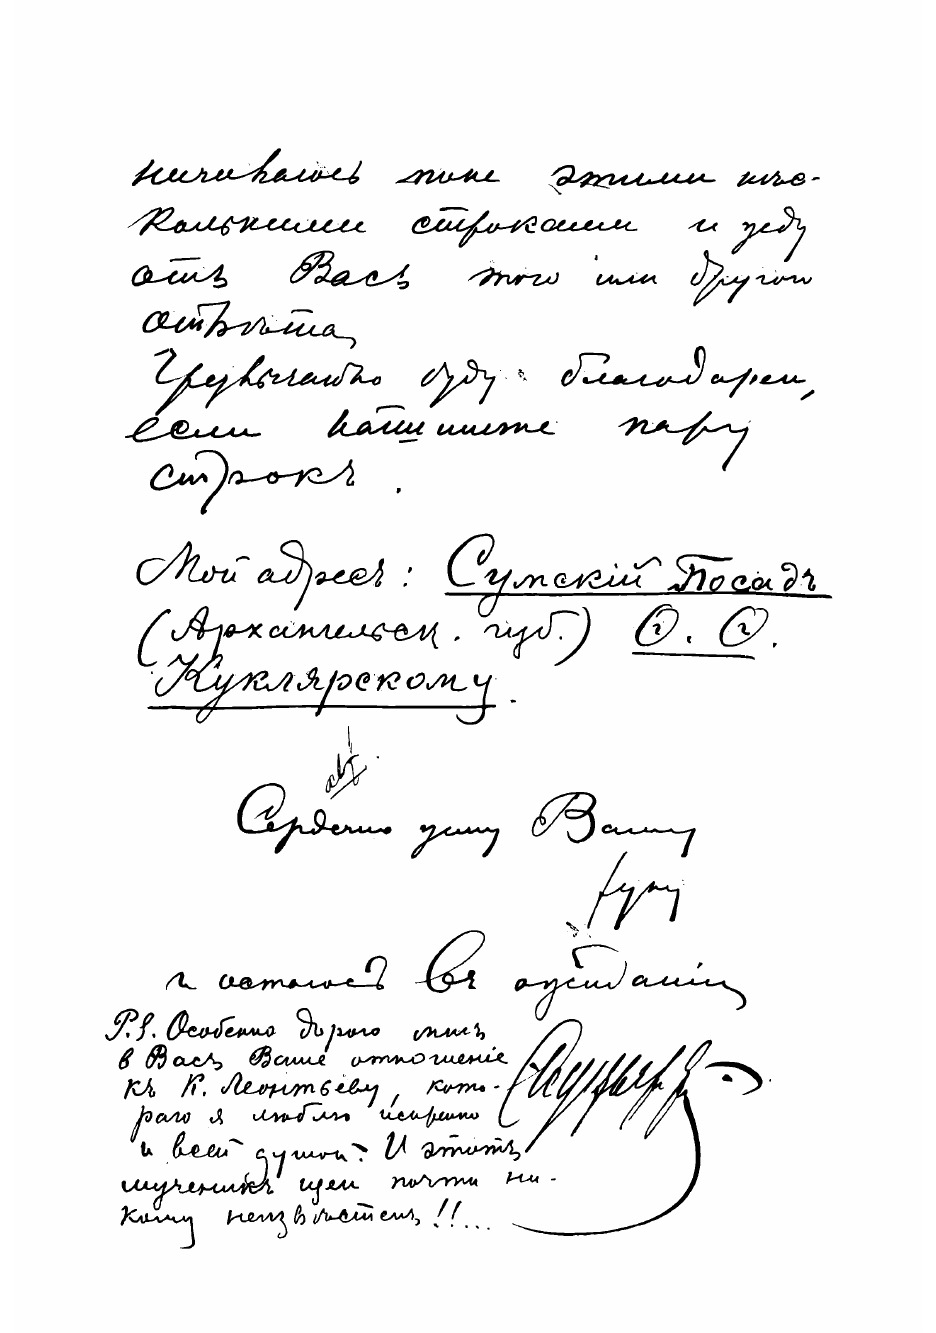 ничиваюсь пока этими нѣс-
колькими строками и жду
отъ Васъ того или другого
отвѣта,
Чрезвычайно буду благодарен,
если напишите пару
строкъ.
Мой адресъ: Сумскій Посадъ
(Архангельск. губ.) Ѳ. Ѳ.
Куклярскому.
Сердечно жму Вашу
руку
и остаюсь въ ожиданіи
P.S. Особенно дорого мнѣ
в Васъ Ваше отношеніе
къ К. Леонтьеву, кото-
раго я люблю искренно
и всей душой. И этотъ
мученикъ идеи почти ни-
кому неизвѣстенъ!!...